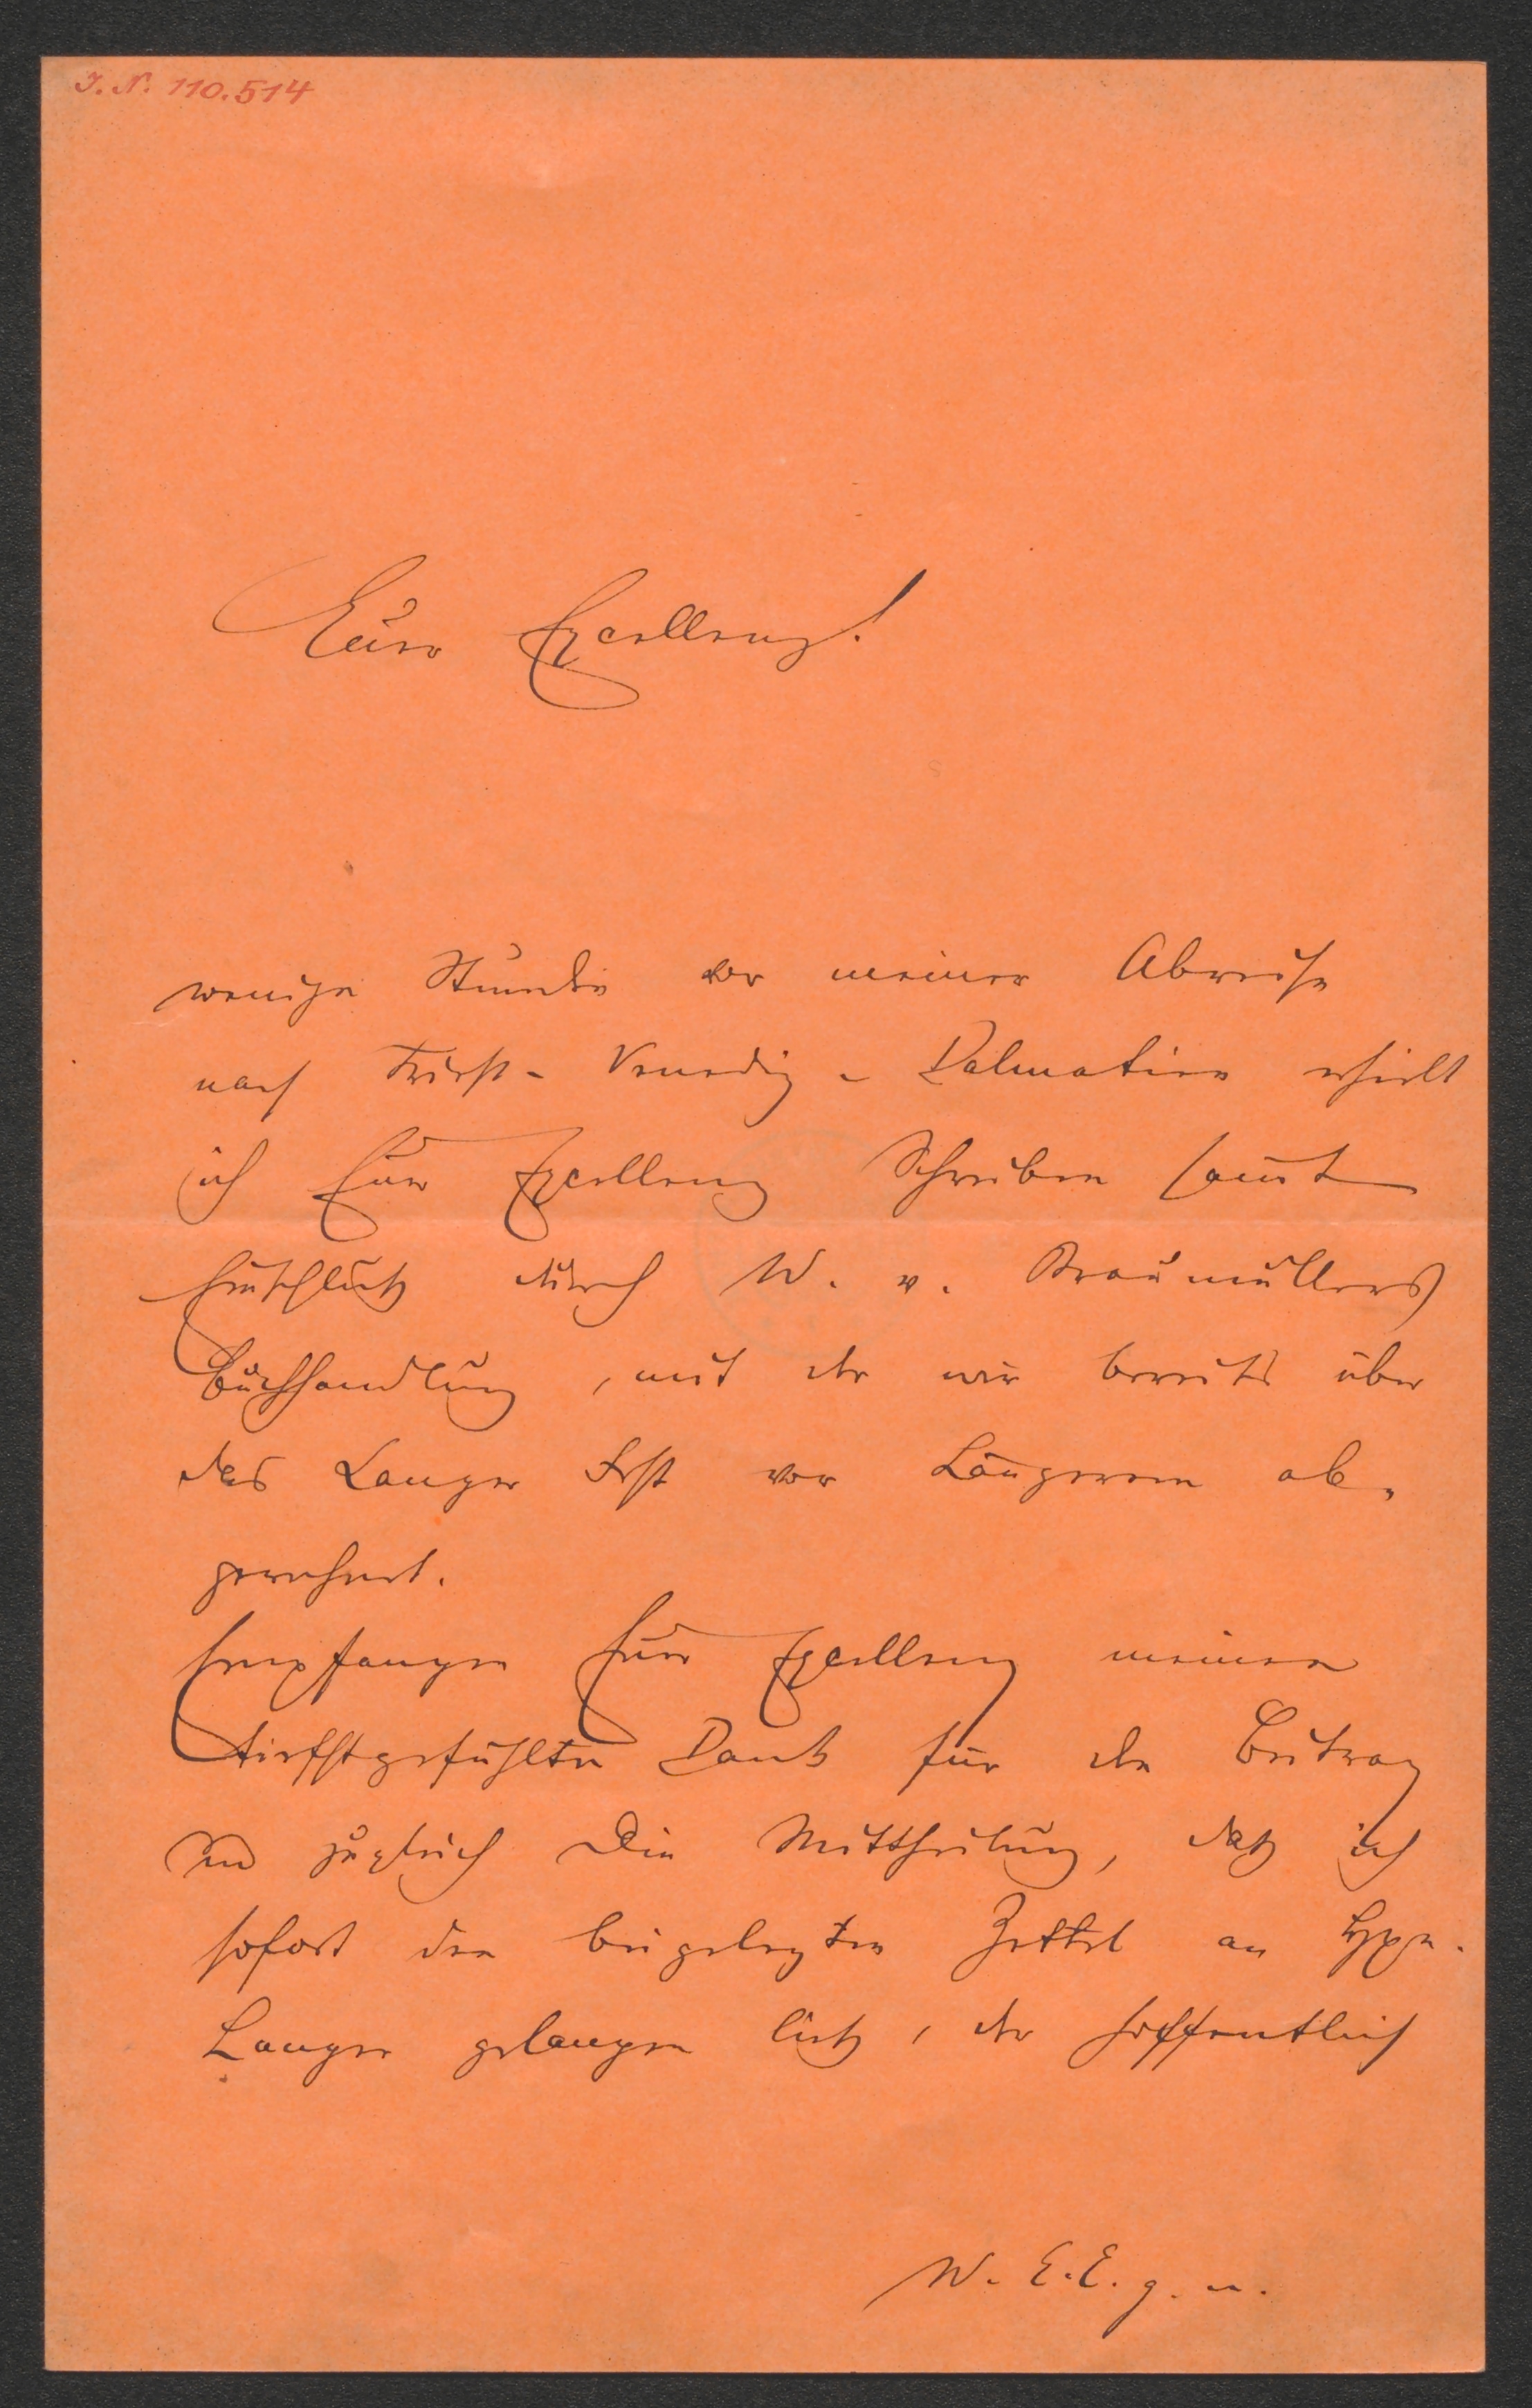 J. N. 110.514
Euer Excellenz!
wenige Stunden vor meiner Abreise
nach Triest - Venedig - Dalmatien erhielt
ich Euer Excellenz Schreiben samt
Einschluß durch W. v. Braumüllers
Buchhandlung, mit der wir bereits über
das Langer Fest vor Längerem ab-
gerechnet.
Empfangen Euer Excellenz meinen
tiefstgefühlten Dank für den Beitrag
und zugleich die Mittheilung, daß ich
sofort den beigelegten Zettel an
Langer gelangen ließ, der hoffentlich
W. E. E. g. u.